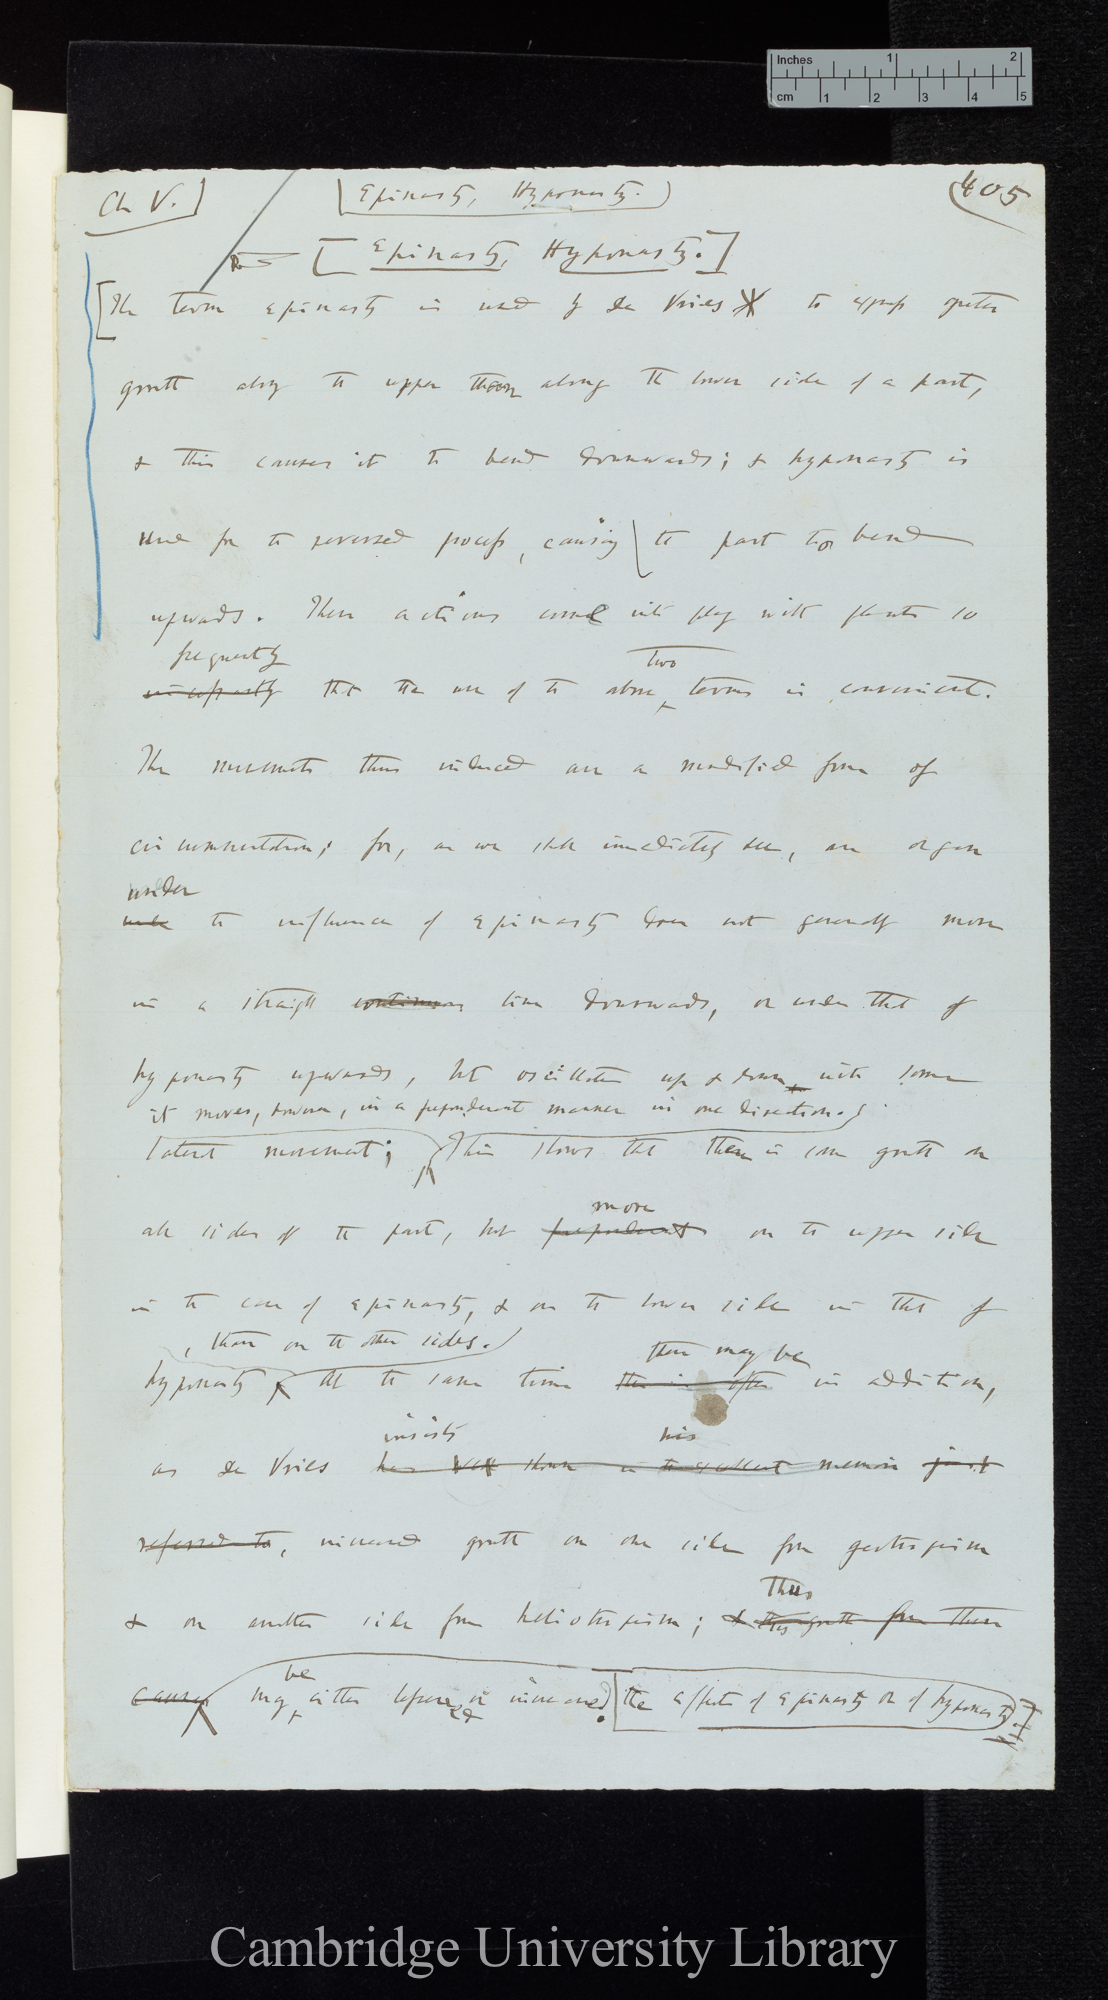 Inches 1 2
cm 1 2 3 4 5
Ch V.]
(Epinasty, Hyponasty.)
405
[Epinasty, Hyponasty.]
[The term epinasty is used by de Vries X to express greater
growth along the upper than along the lower side of a part,
& this causes it to bend downwards; & hyponasty is
used for the reversed process, causing the part to bend
upwards. These actions come into play with plants so
frequently two
that the use of the above terms is convenient.
The movements thus induced are a modified form of
circumnutation; for, as we shall immediately see, an organ
under
the influence of epinasty does not generally move
in a straight continuous line downwards, or under that of
hyponasty upwards, but oscillates up & down with some
it moves, however, in a preponderant manner in one direction.
lateral movement; This shows that there is some growth on
more
all sides of the part, but preponderant on the upper side
in the case of epinasty, & on the lower side in that of
, than on the other sides.
there may be
hyponasty At the same time there is often in addition,
insists his
as de Vries has well shown in the excellent memoir just
referred to, increased growth on one side from geotropism
Thus
& on another side from heliotropism; & this growth from these
be
causes may either lessened or increased. the effects of epinasty or of hyponasty.]
Cambridge University Library